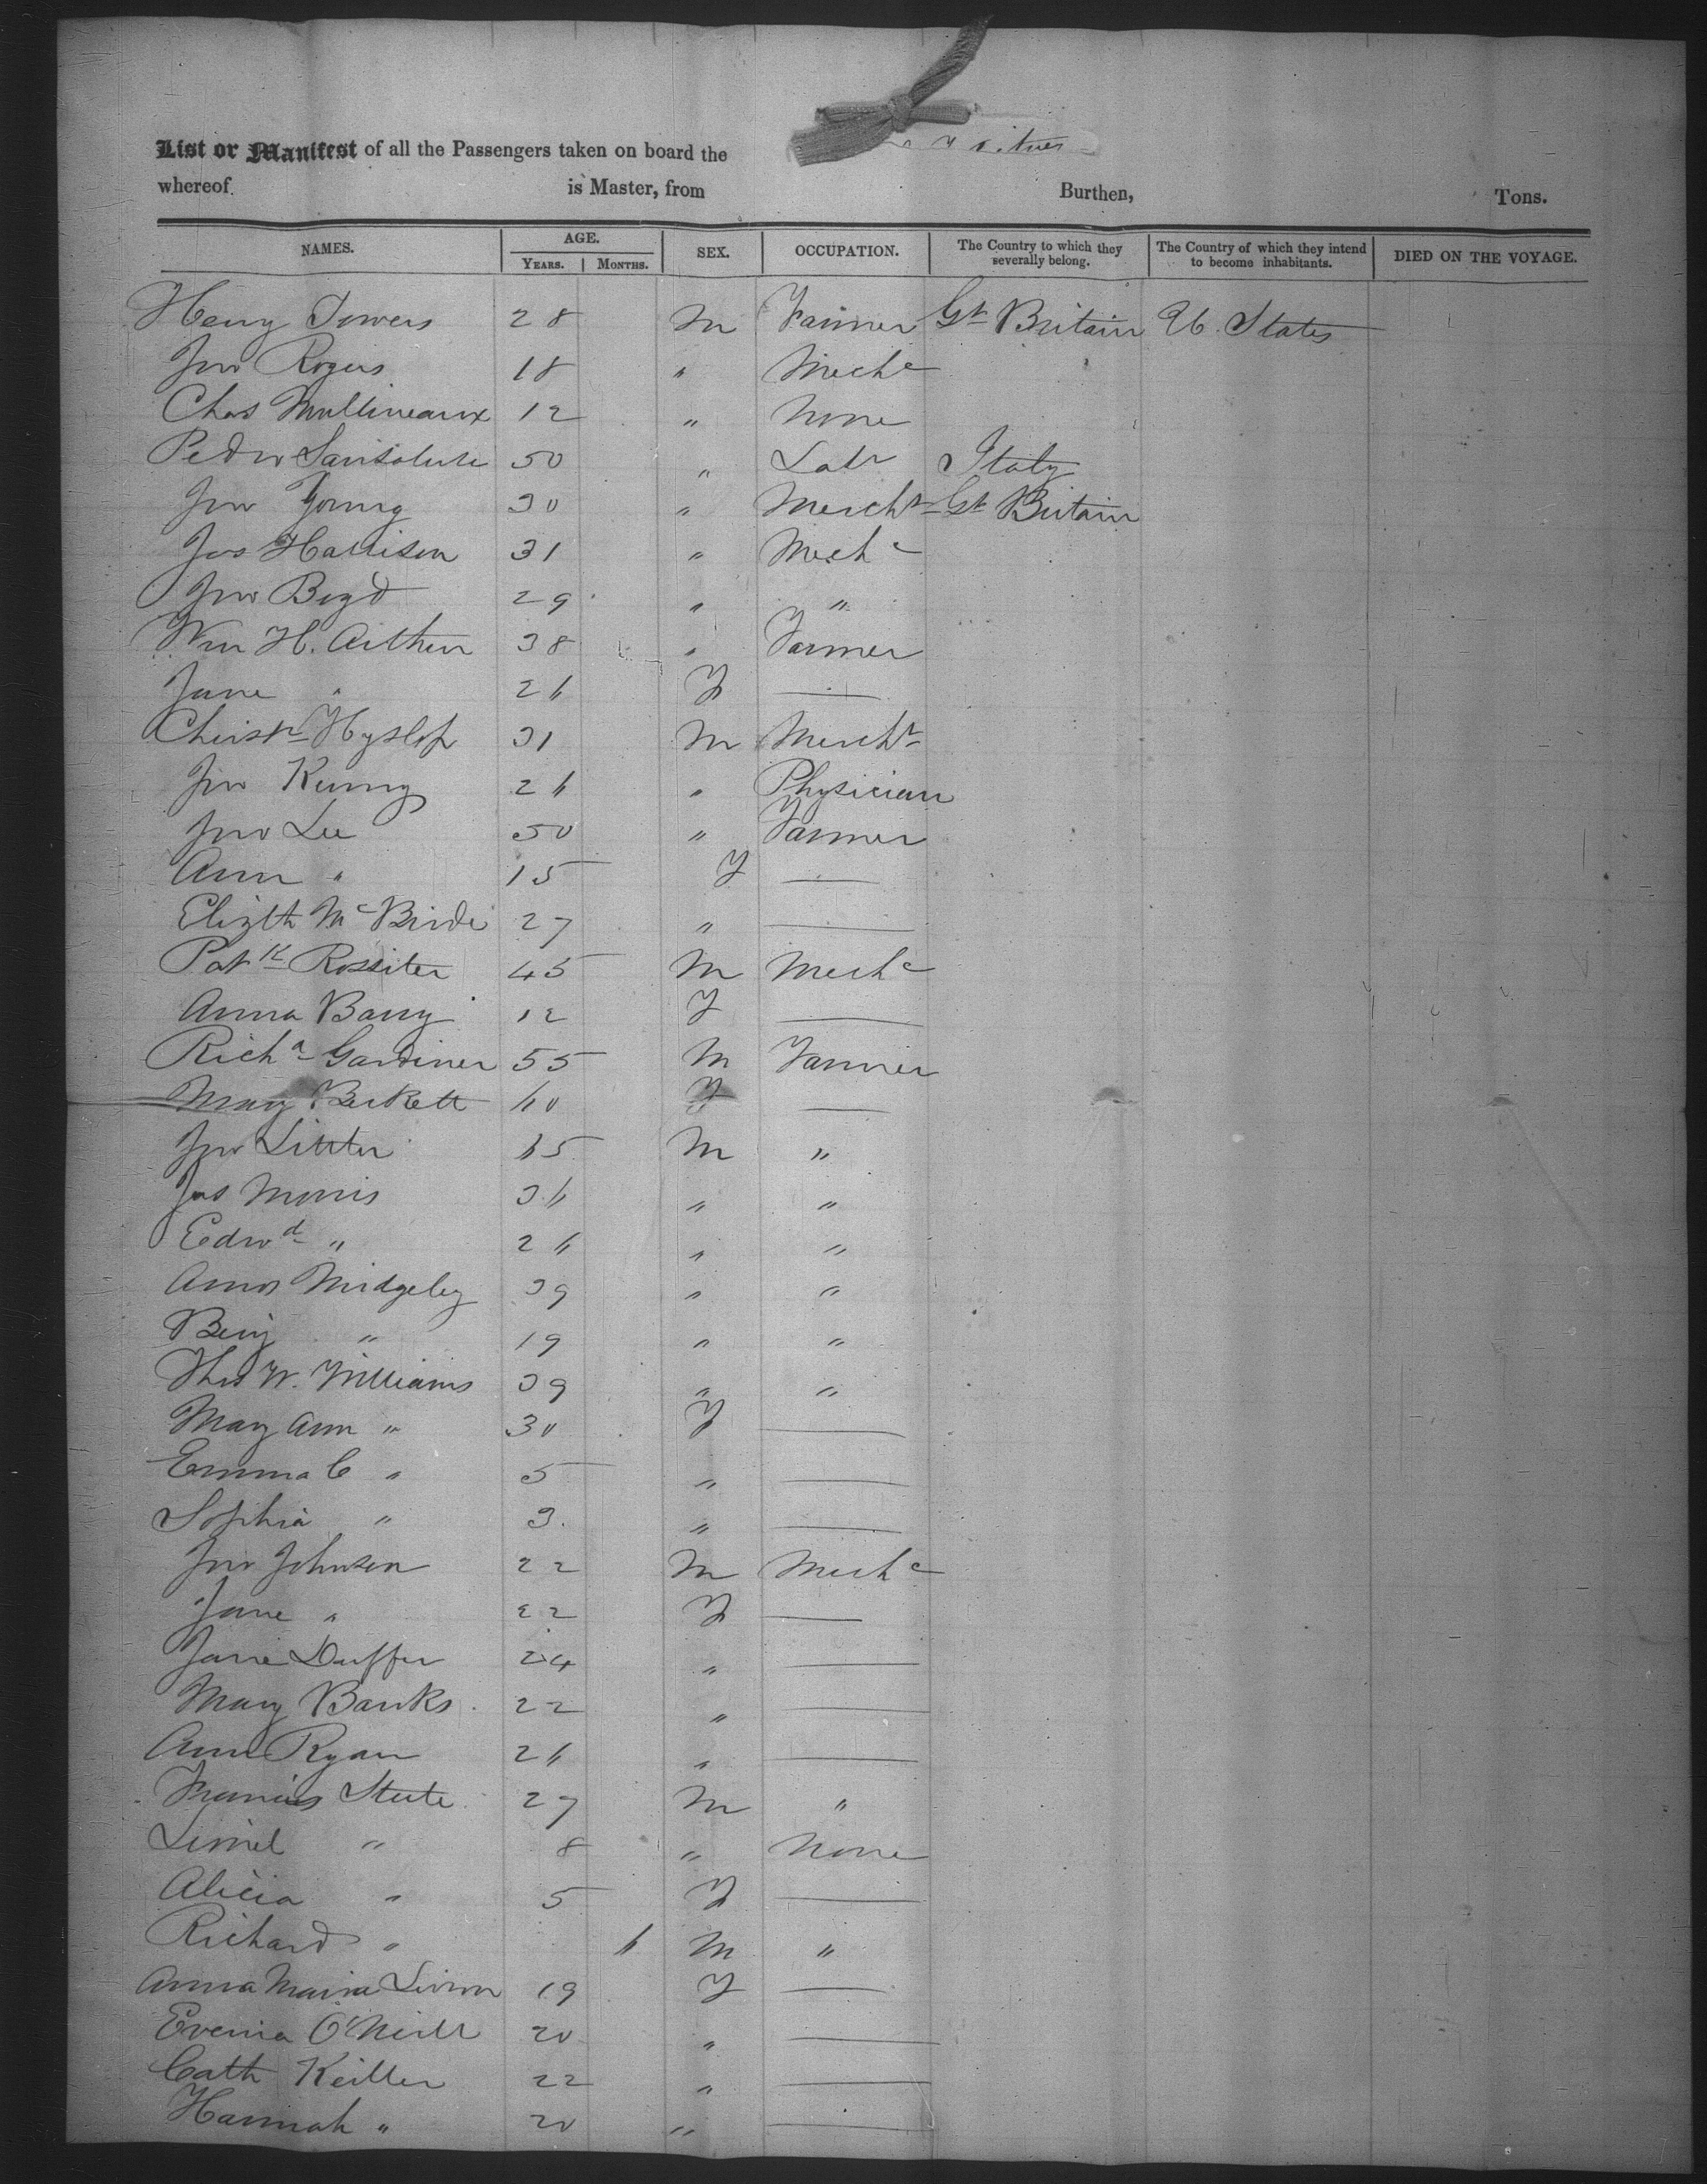 List or Manifest of all the Passengers taken on board the
whereof is Master, from Burthen, Tons.
NAMES. AGE. SEX. OCCUPATION. The Country to which they severally belong. The Country of which they intend to become inhabitants. DIED ON THE VOYAGE.
YEARS. MONTHS.
Henry Towers 28 M Farmer Gt Britain U. States
Jno Rogers 18 " Mechc
Chas Mullineaux 12 " None
Pedro 50 " Labr Italy
Jno Young 30 " Mercht Gt Britain
Jas Hattison 31 " Mechc
Jno Boyd 29 " "
Wm H. Aithen 38 " Farmer
Jane " 26 F —
Christr Hyslop 31 M Mercht
Jno Kenny 26 " Physician
Jno Lee 50 " Farmer
Ann " 15 F —
Elizth McBirde 27 " —
Patk Rossiter 45 M Mechc
Anna Barry 12 F —
Richd Gardiner 55 M Farmer
Mary Beckett 60 F —
Jno Litter 65 M "
Jas Morris 36 " "
Edwd " 26 " "
Amos Midgeley 39 " "
Benj " 19 " "
Thos W. Williams 39 " "
Mary Ann " 30 F —
Emma C " 5 " —
Sophia " 3 " —
Jno Johnson 22 M Mechc
Jane " 22 F —
Jane Duffer 24 " —
Mary Banks 22 " —
Ann Ryan 26 " —
Francis Steete 27 M "
Lionel " 8 " None
Alicia " 5 F —
Richard " 6 M "
Anna Maria 19 F —
Evenia O'Neill 20 " —
Cath Keiller 22 " —
Hannah " 20 " —